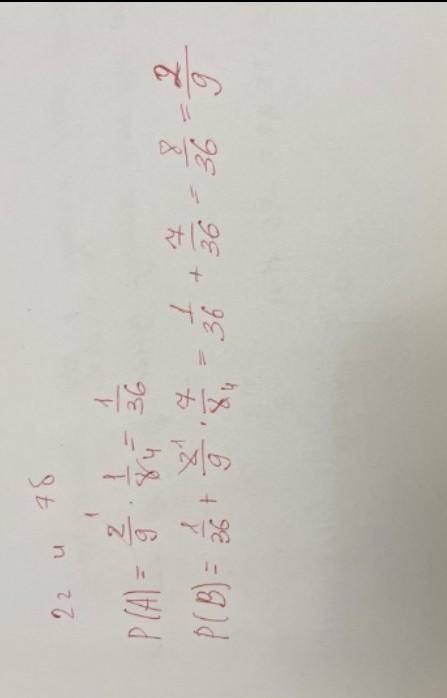 2г и 7б
P(A) = 2/9 · 1/8 = 1/36
P(B) = 1/36 + 2/9 · 7/8 = 1/36 + 7/36 = 8/36 = 2/9